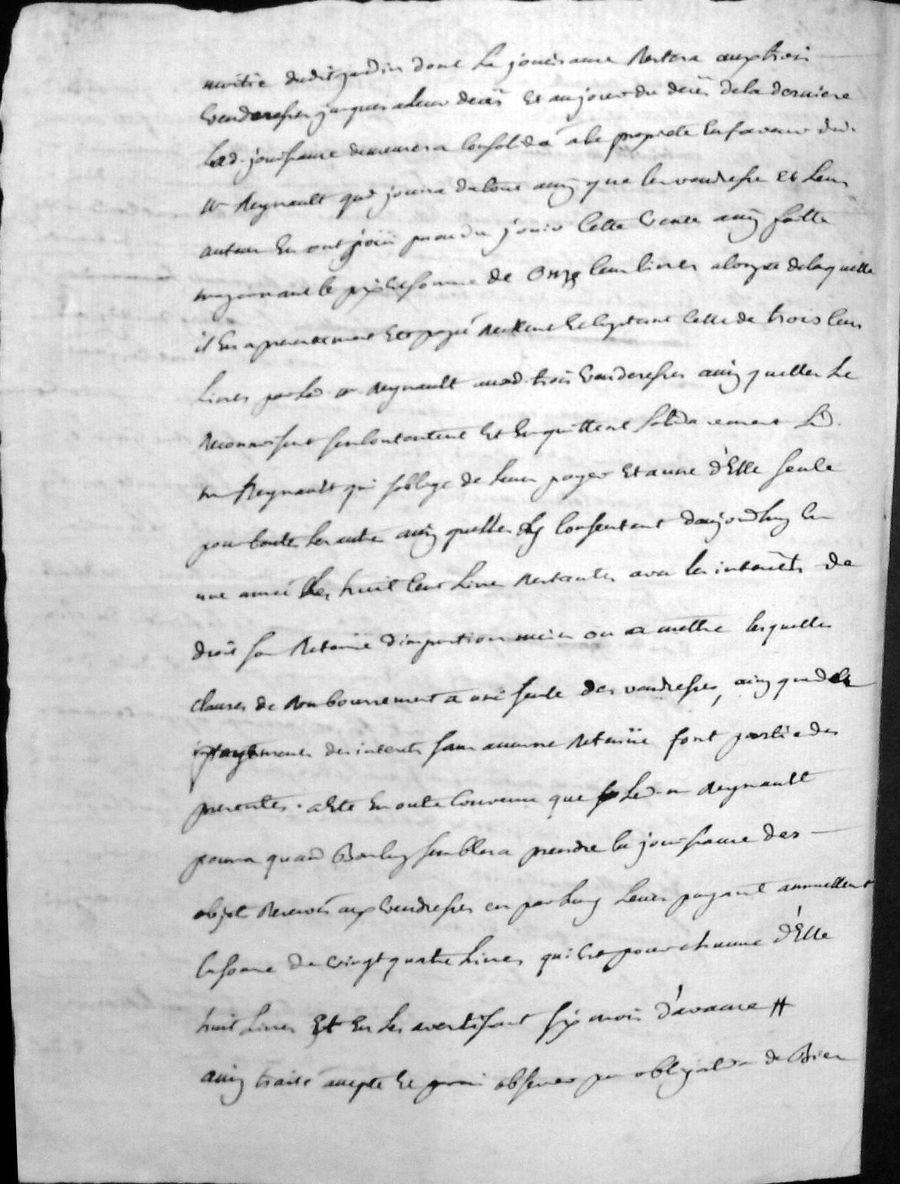 moitié dudit jardin dont la jouissance restera aux trois
venderesses jusques a leur decés Et au jour du decés de la derniere
lad. jouissance demeurera consolidé a la propriete en faveur dud.
sr Reynault qui jouira du tout ainsy que les venderesses et leurs
auteur en ont joüi pu ou du jouir cette vente ainsy faitte
moyennant le prix et somme de Onze cens livres a compte de laquelle
il en a presentement Eté payé reellement celle de trois cens
livres par led sr Reynault auxd. trois venderesses ainsy quelles le
reconnoissent sen contentent Et en quittent solidairement led.
sr Reynault qui soblige de leur payer Et a une d'Elle seule
pour toutte les autre ainsy quelles y consentent daujourdhuy en
une année les huit cent livre restantes avec les interêts de
droit sans retenüe d'impositions mises ou a mettre lesquelles
clauses de remboursement a une seule des venderesses, ainsy que de
payements des interets sans aucune retenüe font partie des
presentes. a Eté en outre convenu que led sr Reynault
pourra quand bon luy semblera prendre la jouissance des
objet reservés aux venderesses en par luy leurs payant annuellement
la some de vingt quatre livres qui est pour chacune d'Elle
huit livres Et en les avertissant six mois d'avance
ainsy traité accepté et promis observer par obligation de Bien